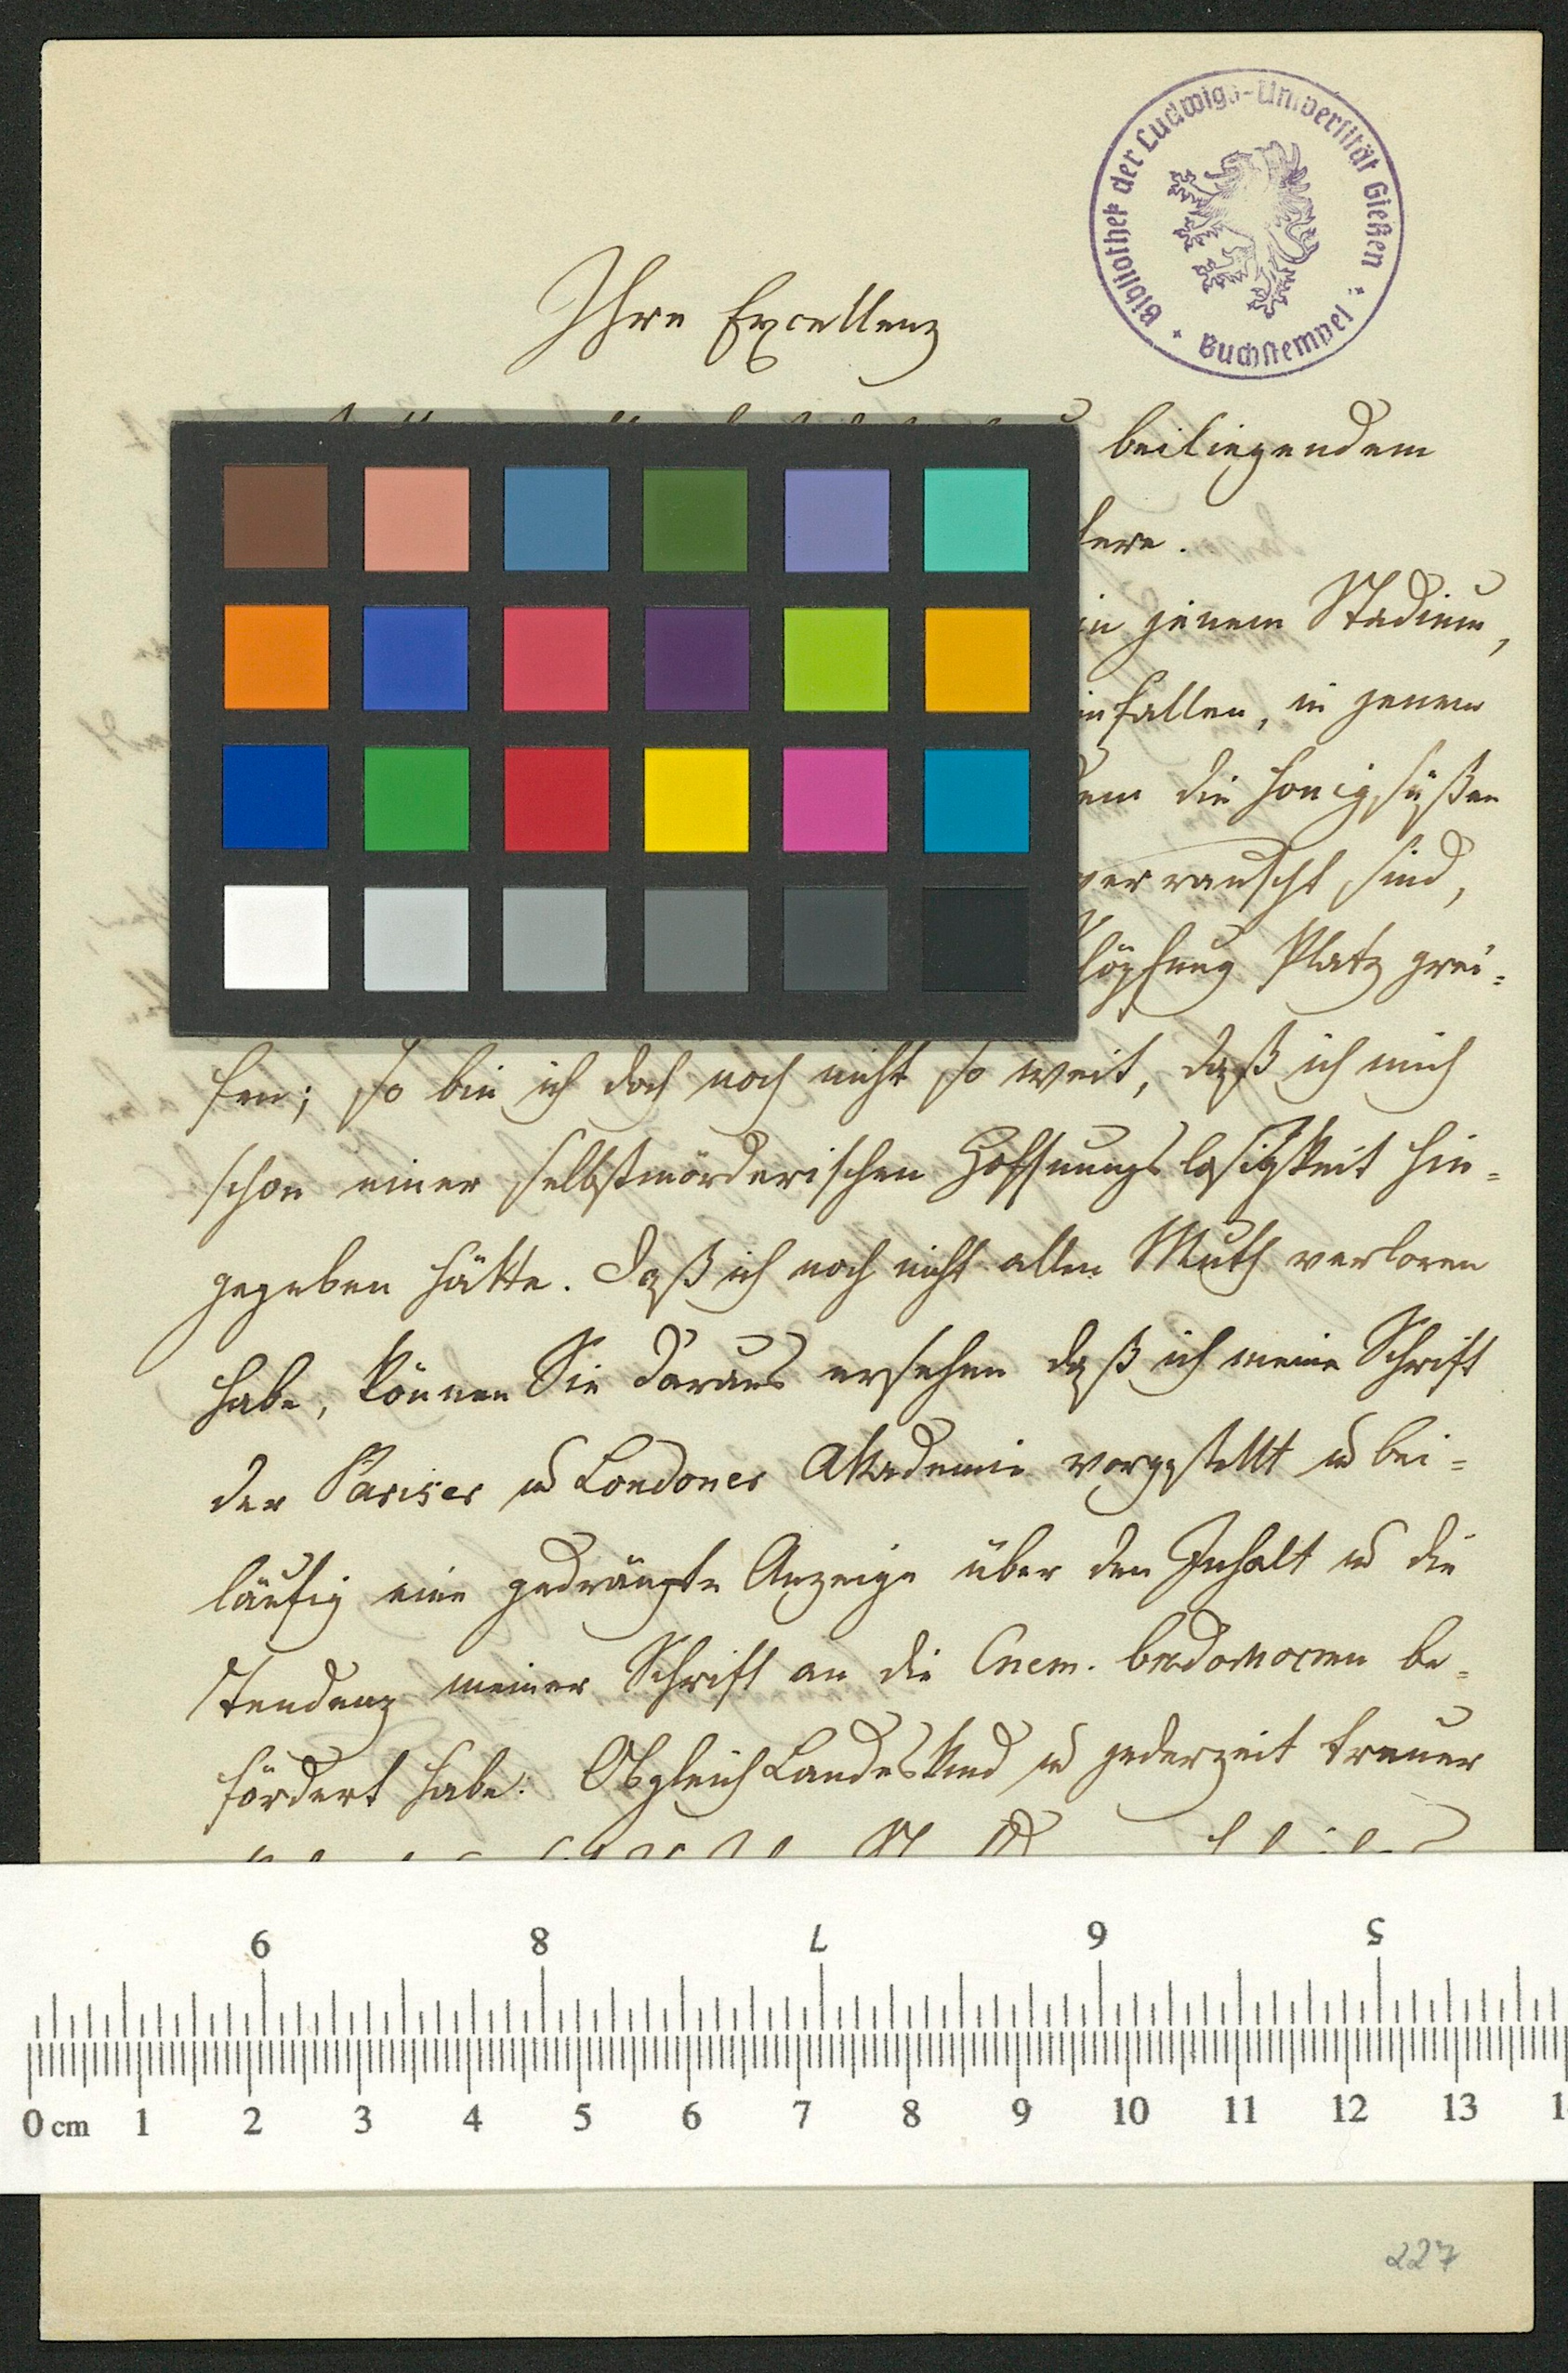 Bibliothek der Ludwigs-Universität Gießen
Buchstempel
Ihre Excellenz
beiliegendem
in jenem Stadium,
infallen, in jenem
die honigsüßen
verrauscht sind,
Platz grei-
fen; so bin ich doch noch nicht so weit, daß ich mich
schon einer selbstmörderischen Hoffnungslosigkeit hin-
gegeben hätte. Daß ich noch nicht allen Muth verloren
habe, können Sie daraus ersehen daß ich meine Schrift
der Pariser u Londoner Akademie vorgestellt u bei-
läufig eine gedrängte Anzeige über den Inhalt u die
Tendenz meiner Schrift an die be-
fördert habe. Obgleich Landeskind u jederzeit treuer
9 8 7 6 5
0 cm 1 2 3 4 5 6 7 8 9 10 11 12 13 1
227